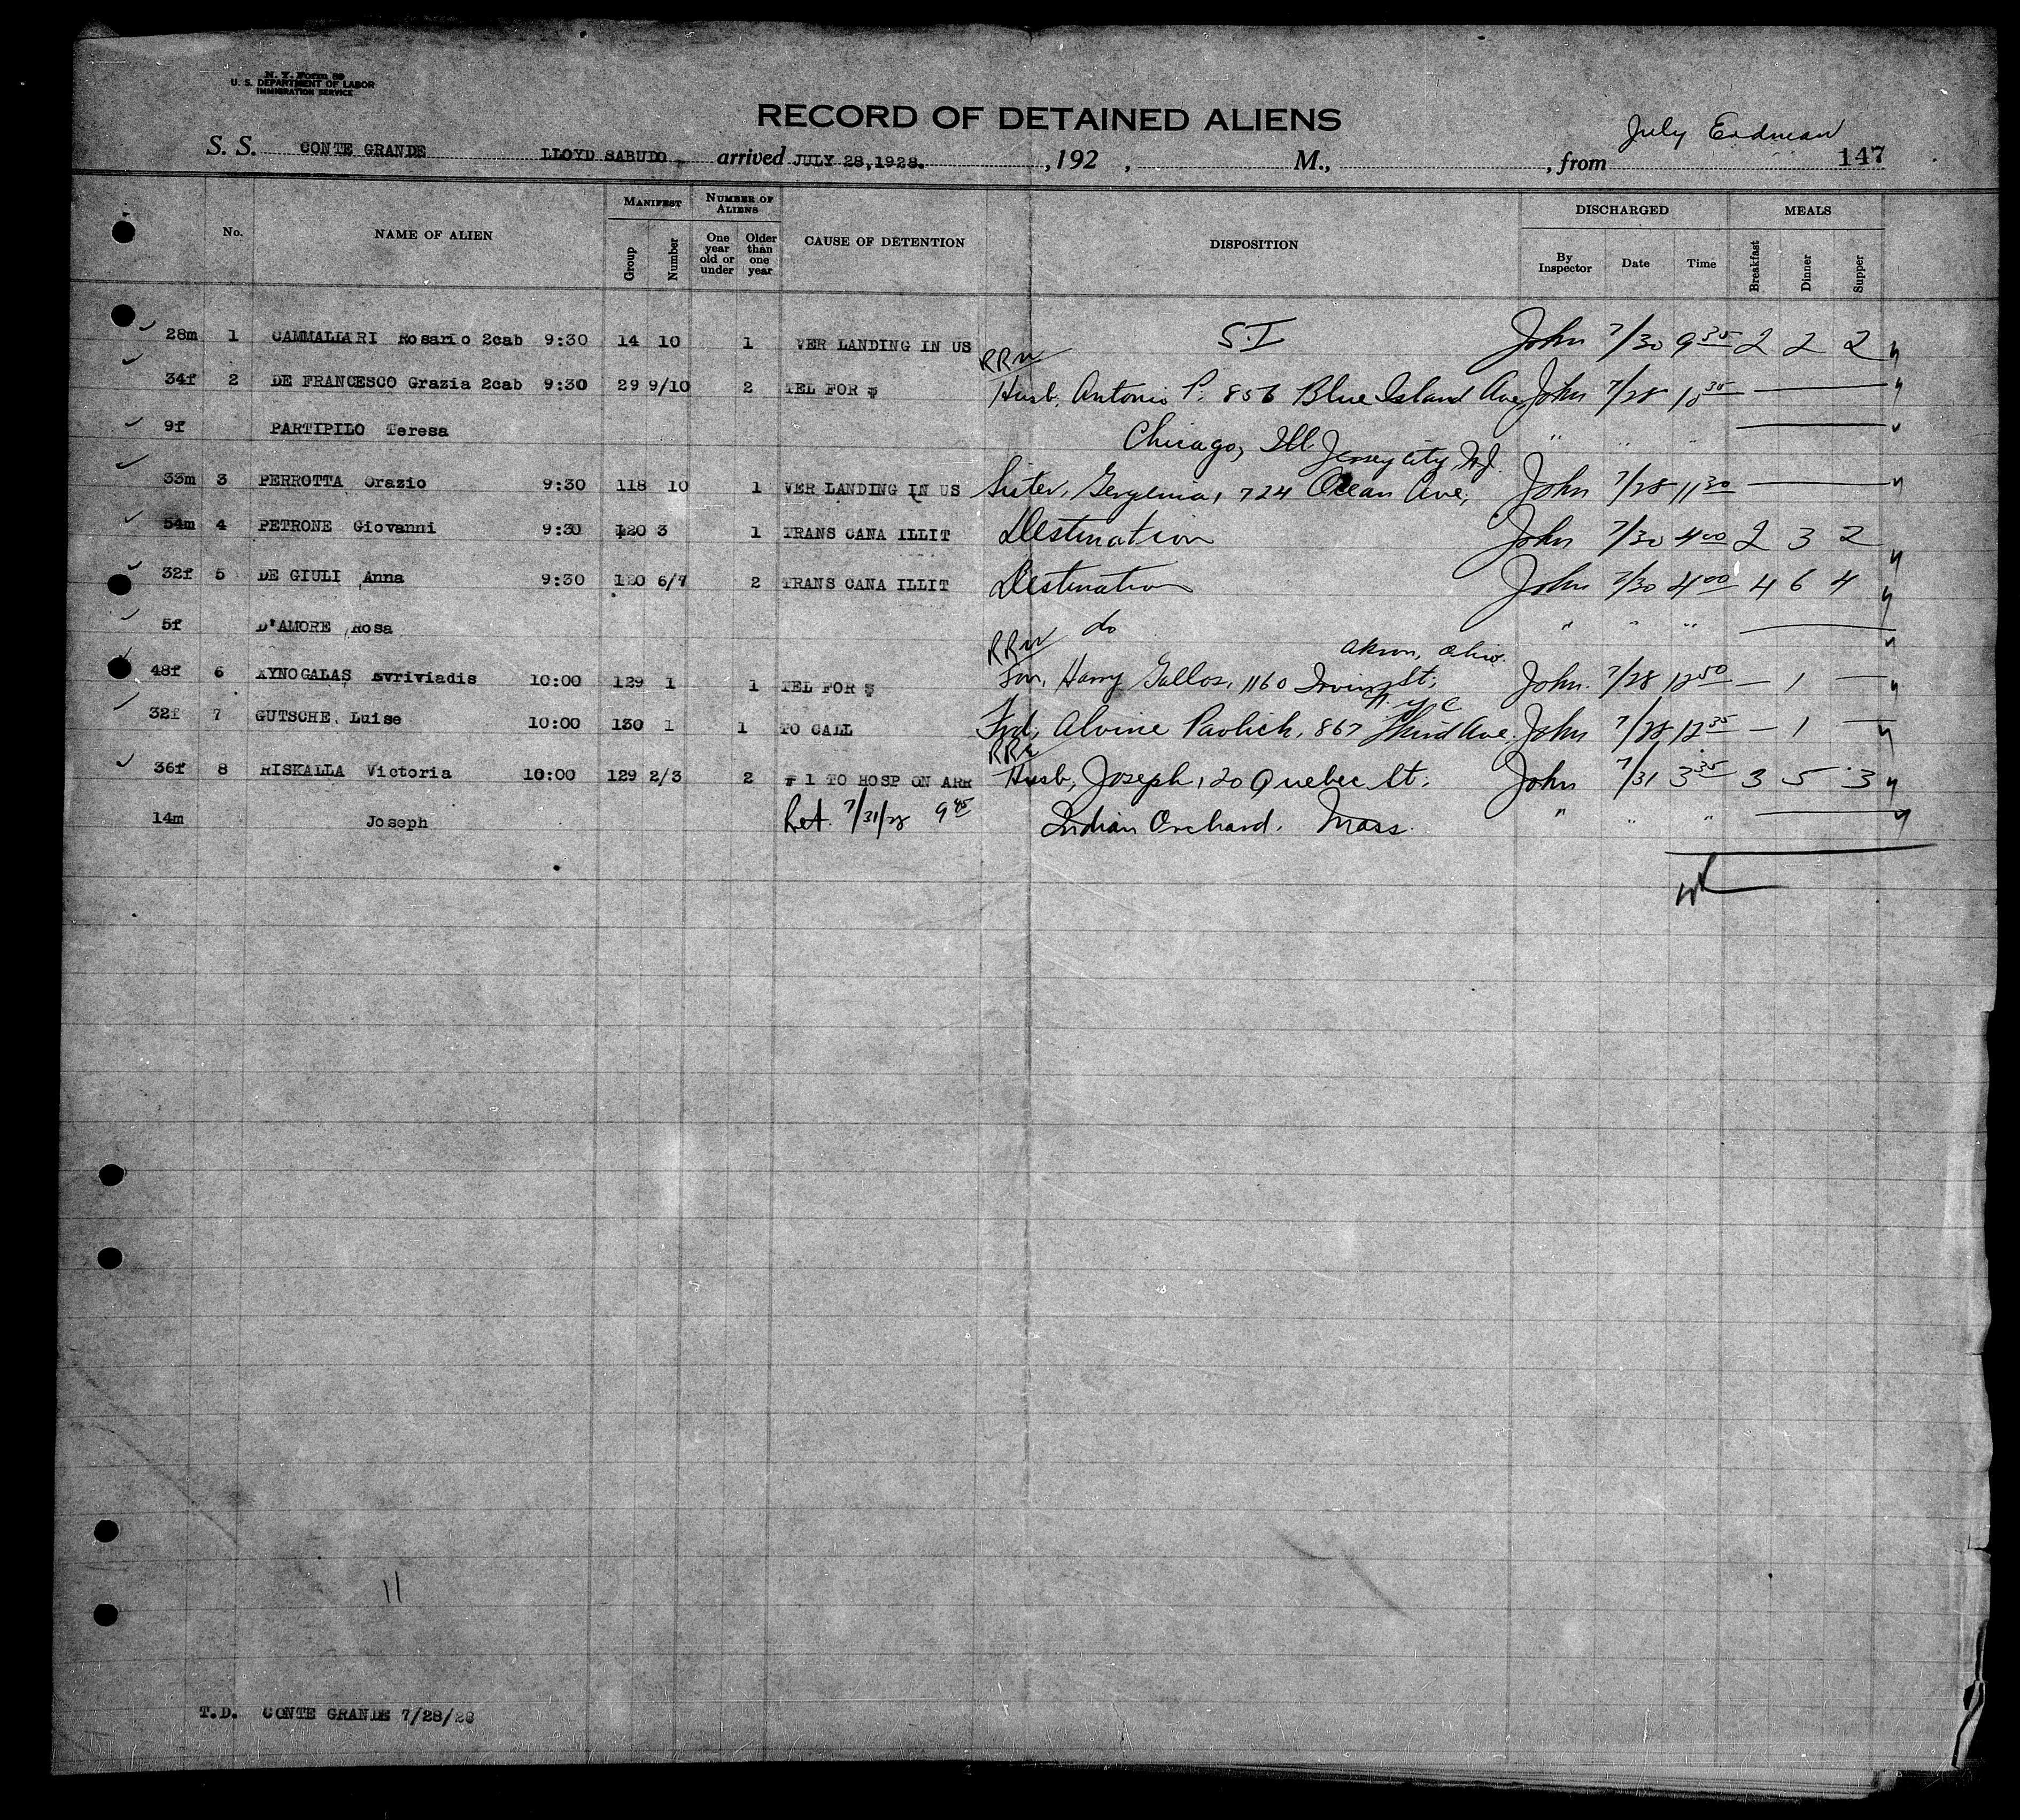 N. Y. Form 89
U. S. DEPARTMENT OF LABOR
IMMIGRATION SERVICE
RECORD OF DETAINED ALIENS
July Erdman
S. S. CONTE GRANDE LLOYD SABUDO arrived JULY 28, 1928. , 192 , M., , from 147
No. NAME OF ALIEN MANIFEST Group Number NUMBER OF ALIENS One year old or under Older than one year CAUSE OF DETENTION DISPOSITION DISCHARGED By Inspector Date Time MEALS Breakfast Dinner Supper
28m 1 CAMMALLARI Rosario 2cab 9:30 14 10 1 VER LANDING IN US S.I John 7/30 9 35 2 2 2
RRN
34f 2 DE FRANCESCO Grazia 2cab 9:30 29 9/10 2 TEL FOR $ Husb, Antonio P. 856 Blue Island Ave, John 7/28 10 35
9f PARTIPILO Teresa Chicago, Ill. " " "
Jersey City, N.J.
33m 3 PERROTTA Orazio 9:30 118 10 1 VER LANDING IN US Sister, 724 Ocean Ave, John 7/28 11 30
54m 4 PETRONE Giovanni 9:30 120 3 1 TRANS CANA ILLIT Destination John 7/30 4 00 2 3 2
32f 5 DE GIULI Anna 9:30 120 6/7 2 TRANS CANA ILLIT Destination John 7/30 4 00 4 6 4
5f D'AMORE Rosa do " " "
RRN Akron, Ohio.
48f 6 XYNOGALAS Evriviadis 10:00 129 1 1 TEL FOR $ Son, Harry Gallos, 1160 Irving St, John 7/28 12 50 — 1 —
N.Y.C
32f 7 GUTSCHE Luise 10:00 130 1 1 TO CALL Frd, Alvine Pavlich, 867 Third Ave. John 7/28 12 35 — 1 —
RRN
36f 8 RISKALLA Victoria 10:00 129 2/3 2 # 1 TO HOSP ON ARR Husb, Joseph, 20 Quebec St, John 7/31 3 35 3 5 3
14m Joseph Ret. 7/31/28 9 45 Indian Orchard, Mass. " " "
11
T.D. CONTE GRANDE 7/28/28